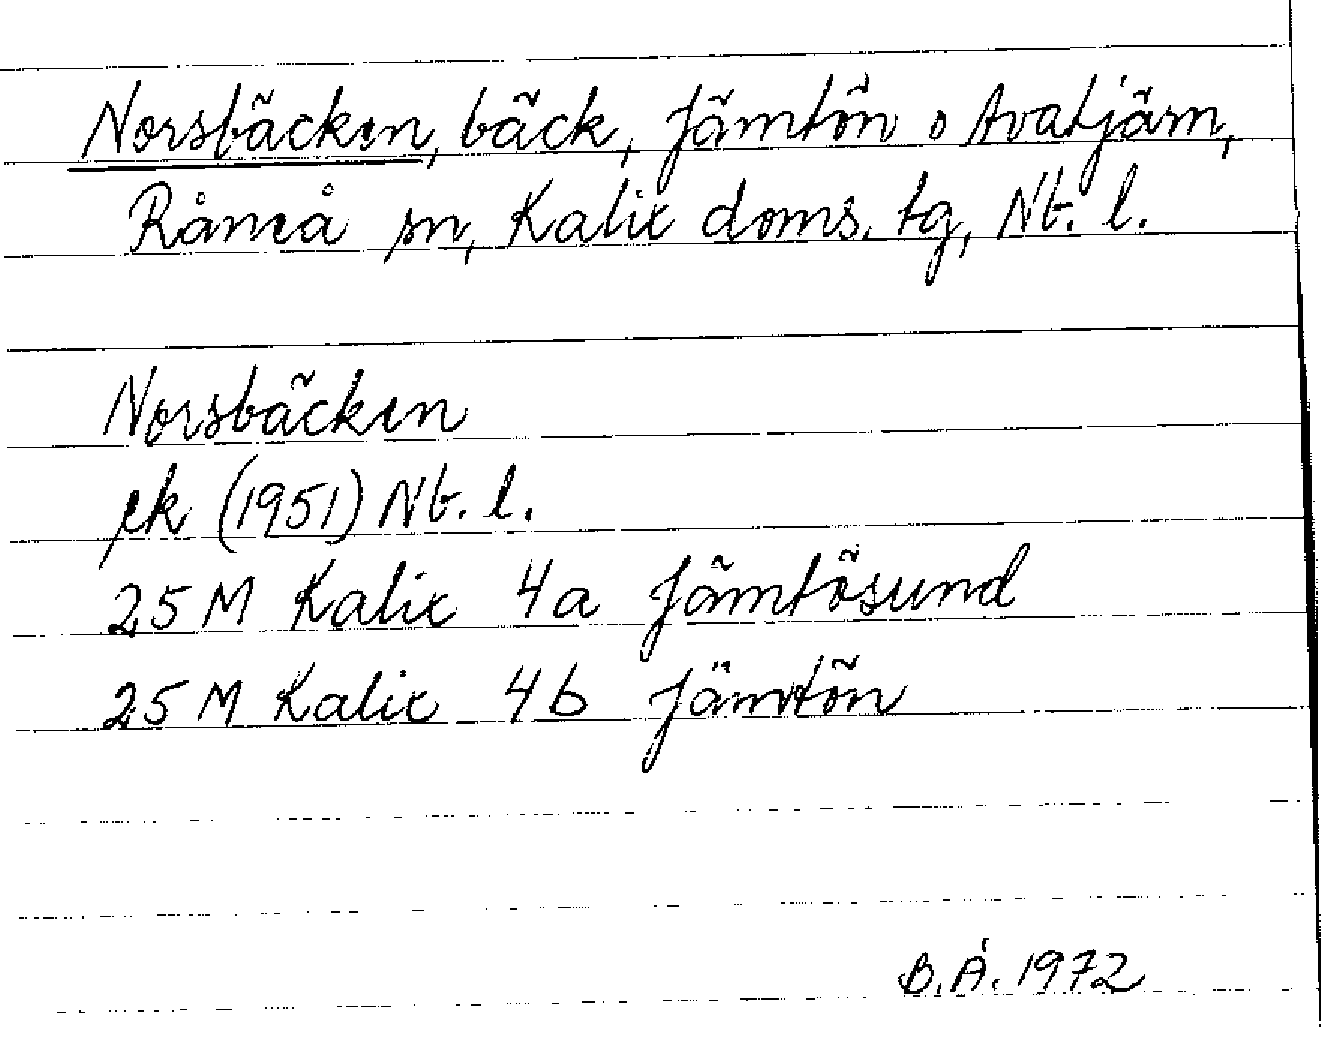 Norsbäcken, bäck, Jämtön o Avatjärn,
Råneå sn, Kalix doms. tg, Nb. l.
Norsbäcken
ek (1951) Nb. l.
25 M Kalix 4a Jämtösund
25 M Kalix 4b Jämtön
B.Å. 1972